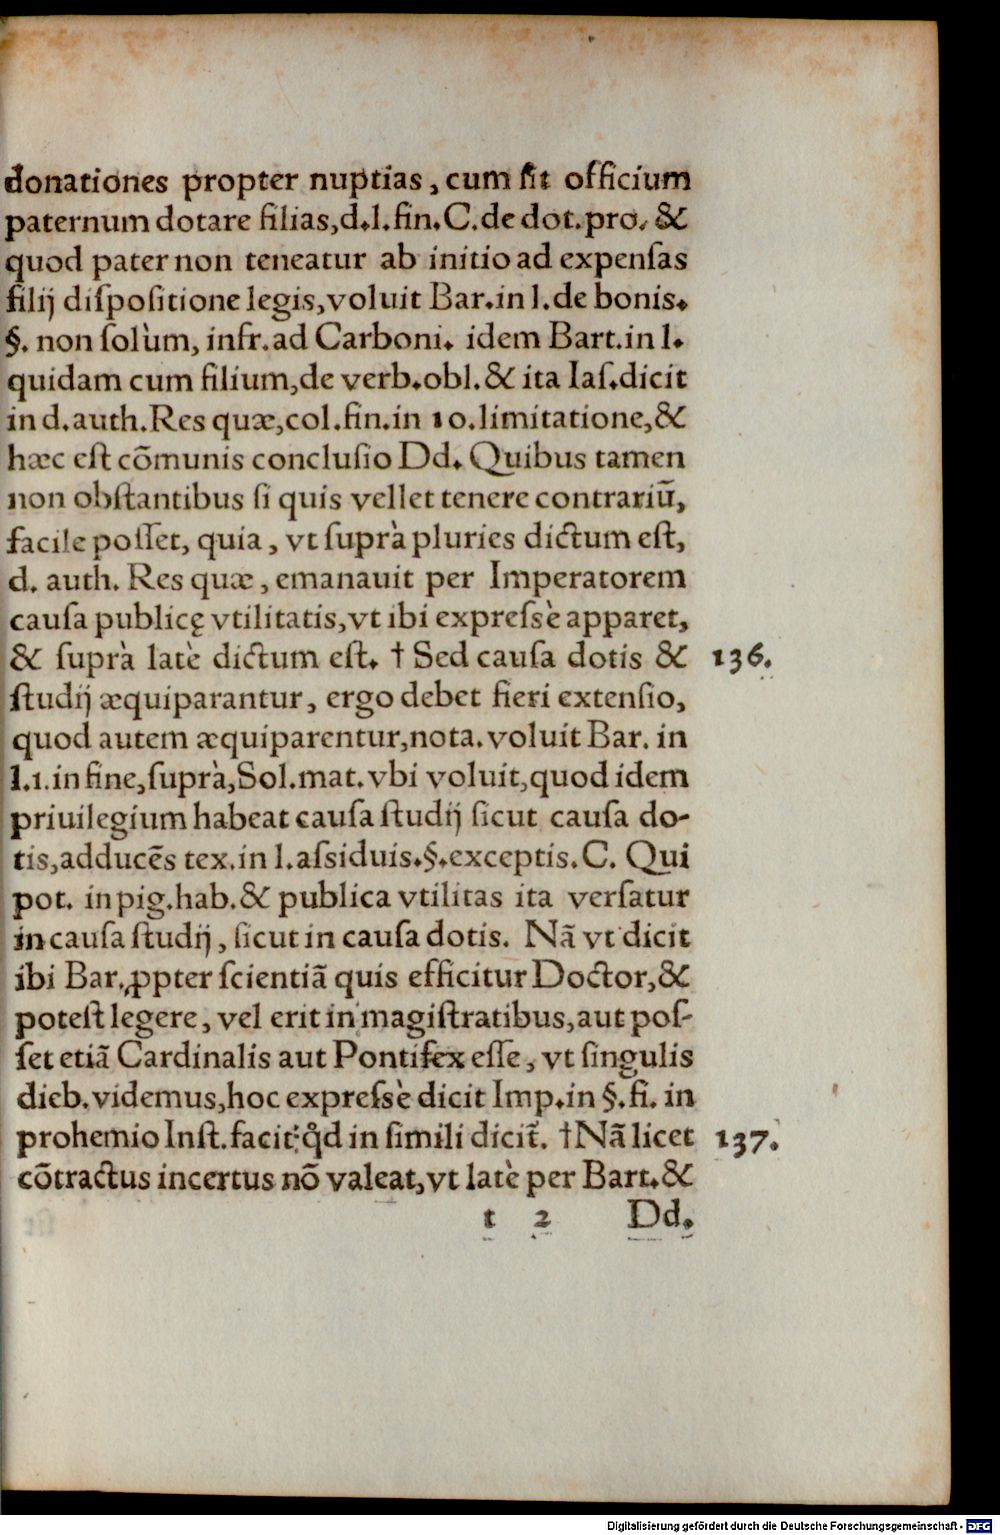 donationes propter nuptias, cum ſit officium
paternum dotare filias, d. l. fin. C. de dot. pro. &
quod pater non teneatur ab initio ad expenſas
filij diſpoſitione legis, voluit Bar. in l. de bonis.
§. non ſolùm, infr. ad Carboni. idem Bart. in l.
quidam cum filium, de verb. obl. & ita Iaſ. dicit
in d. auth. Res quæ, col. fin. in 10. limitatione, &
hæc eſt cõmunis concluſio Dd. Quibus tamen
non obſtantibus ſi quis vellet tenere contrariũ,
facile poſſet, quia, vt ſuprà pluries dictum eſt,
d. auth. Res quæ, emanauit per Imperatorem
cauſa publicę vtilitatis, vt ibi expreſsè apparet,
& ſuprà latè dictum eſt. † Sed cauſa dotis & 136.
ſtudij æquiparantur, ergo debet fieri extenſio,
quod autem æquiparentur, nota. voluit Bar. in
l. 1. in fine, ſuprà, Sol. mat. vbi voluit, quod idem
priuilegium habeat cauſa ſtudij ſicut cauſa do-
tis, adducẽs tex. in l. aſsiduis. §. exceptis. C. Qui
pot. in pig. hab. & publica vtilitas ita verſatur
in cauſa ſtudij, ſicut in cauſa dotis. Nã vt dicit
ibi Bar. ꝓpter ſcientiã quis efficitur Doctor, &
poteſt legere, vel erit in magiſtratibus, aut poſ-
ſet etiã Cardinalis aut Pontifex eſſe, vt ſingulis
dieb. videmus, hoc expreſsè dicit Imp. in §. fi. in
prohemio Inſt. facit: q̊d in ſimili dicit̃. † Nã licet 137.
cõtractus incertus nõ valeat, vt latè per Bart. &
t 2 Dd.
Digitalisierung gefördert durch die Deutsche Forschungsgemeinschaft - DFG